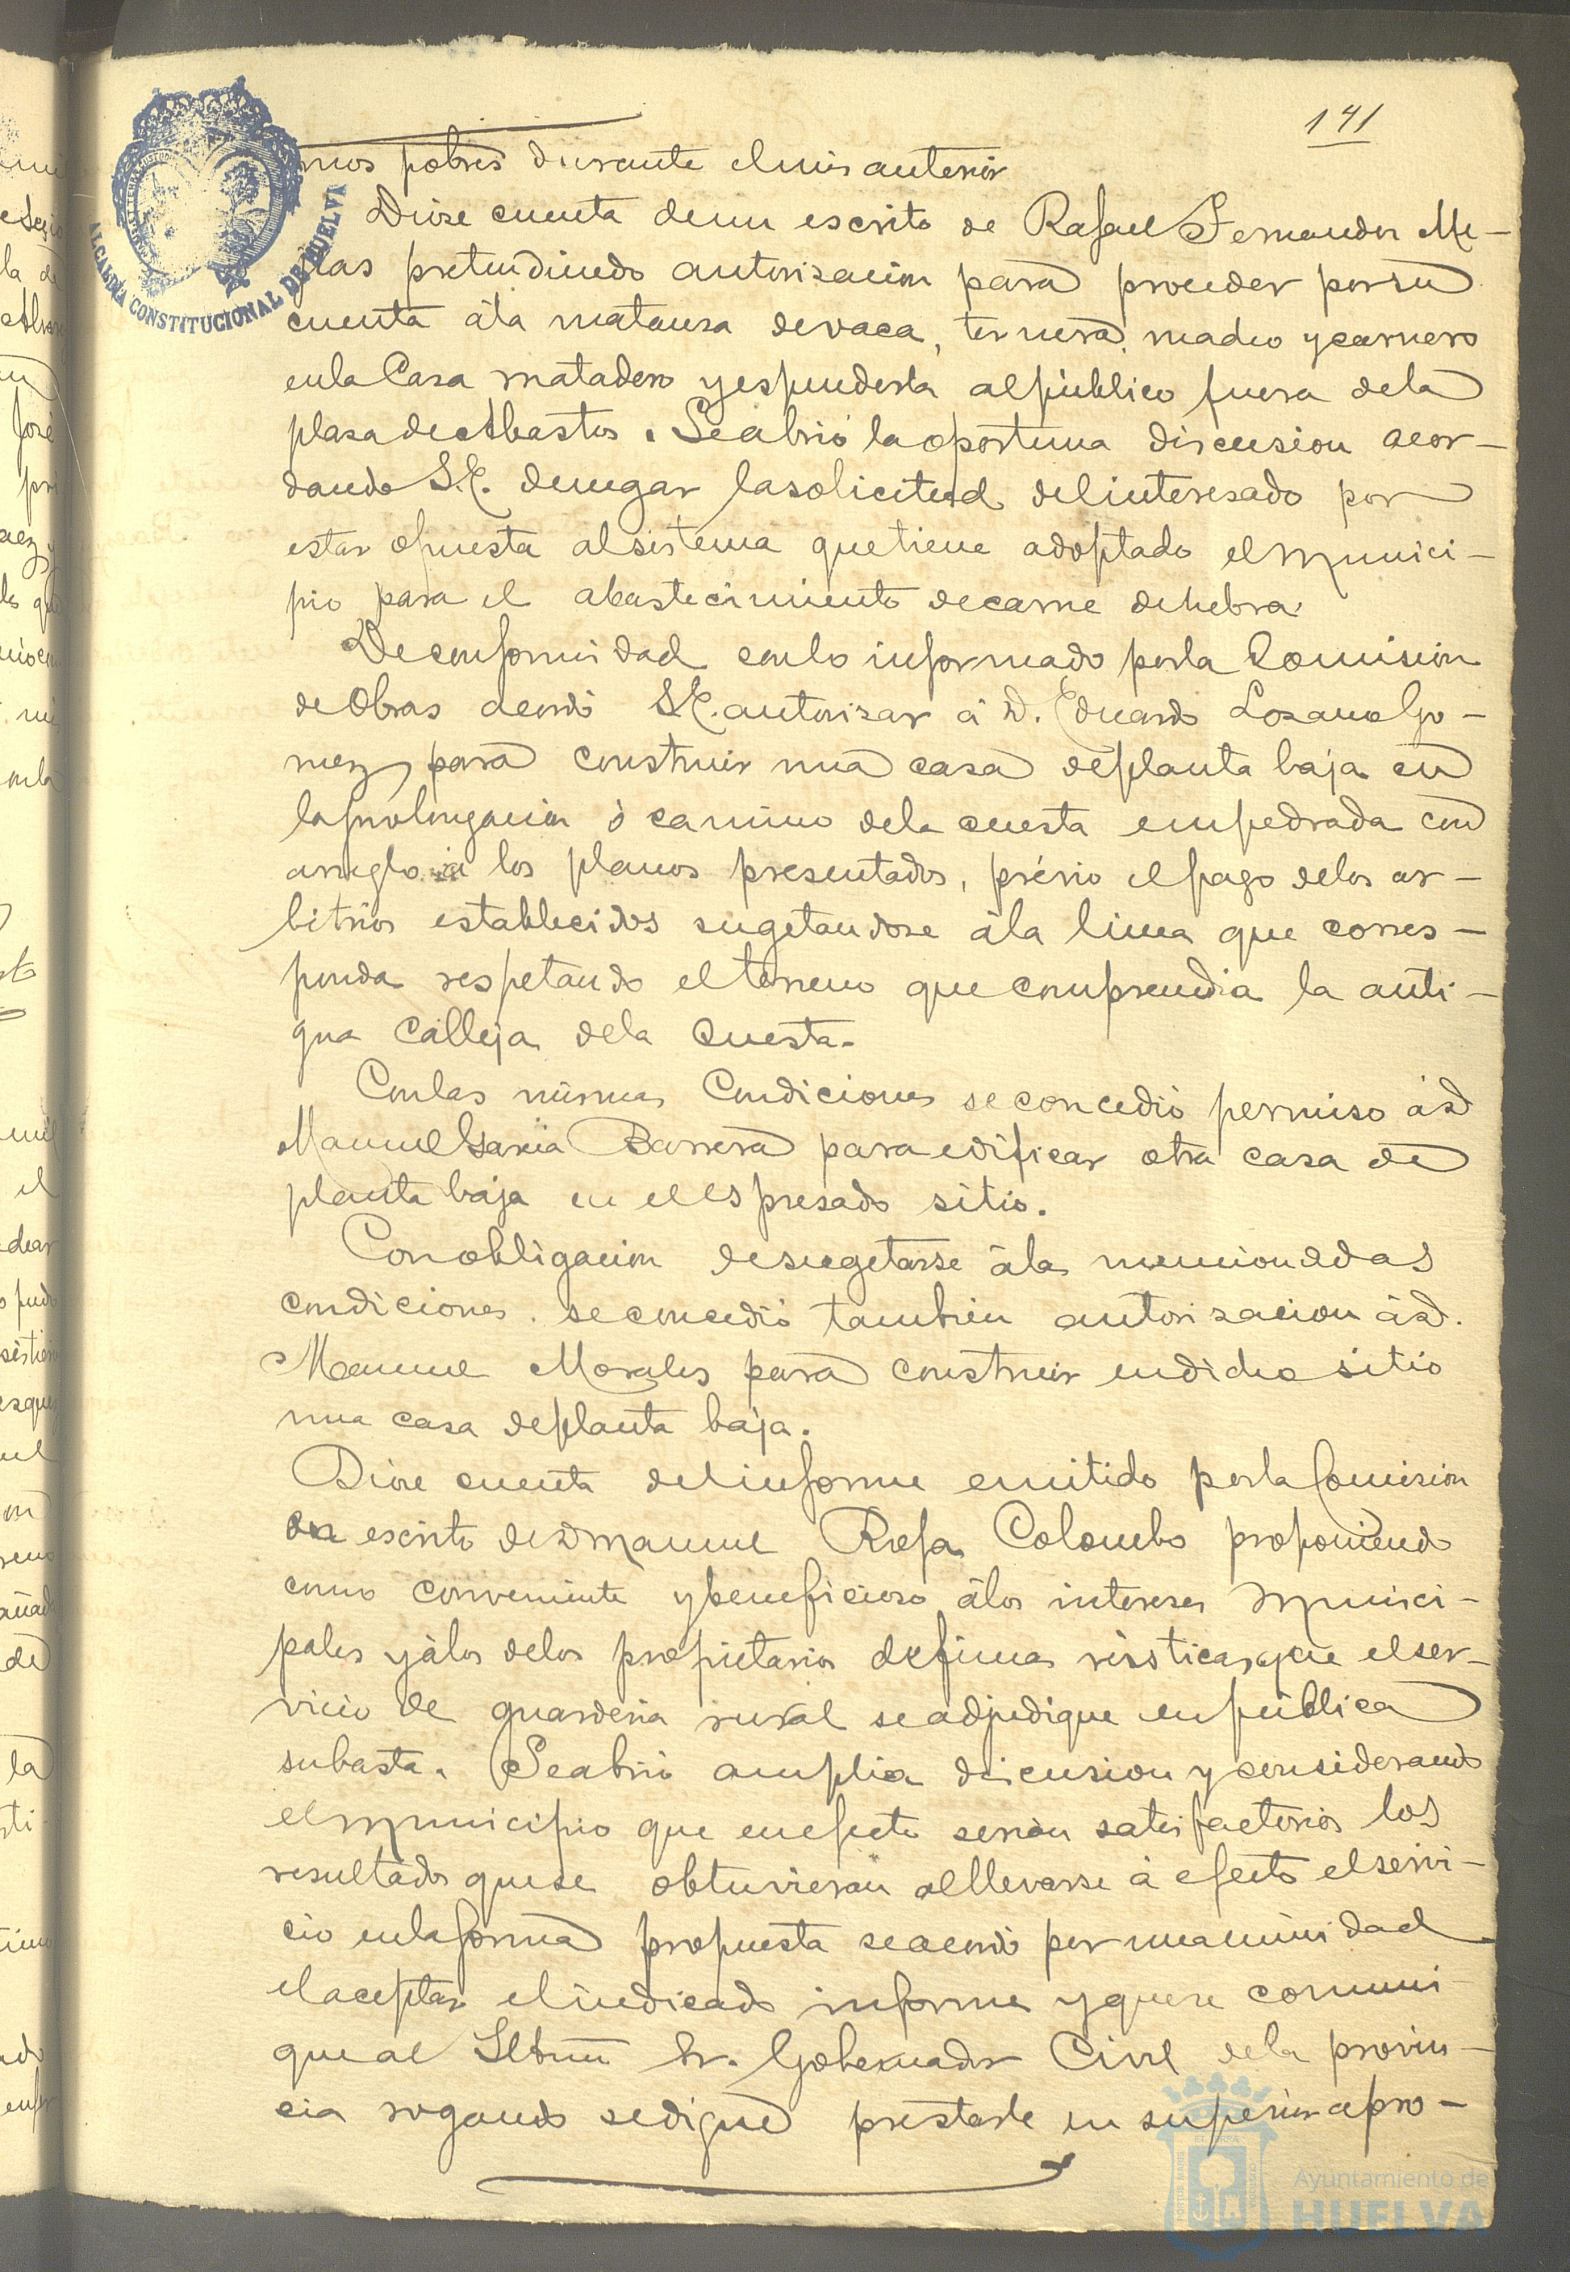 141
ALCALDIA CONSTITUCIONAL DE HUELVA
mos pobres durante el mes anterior
Diose cuenta de un escrito de Rafael Fernandez Me-
jias pretendiendo autorizacion para proceder por su
cuenta á la matanza de vaca, ternera, macho y carnero
en la Casa matadero y espenderla al público fuera de la
plaza de Abastos. Se abrió la oportuna discusion acor-
dando S.E. denegar la solicitud del interesado por
estar opuesta al sistema que tiene adoptado el Munici-
pio para el abastecimiento de carne de hebra.
De conformidad con lo informado por la Comision
de Obras acordó S.E. autorizar á D. Eduardo Lozano Go-
mez, para construir una casa de planta baja en
la prolongacion ó camino de la cuesta empedrada con
arreglo á los planos presentados, prévio el pago de los ar-
bitrios establecidos sugetandose á la linea que corres-
ponda respetando el terreno que comprendia la anti-
gua Calleja de la Cuesta.
Con las mismas Condiciones se concedió permiso á D.
Manuel Garcia Barrera para edificar otra casa de
planta baja en el espresado sitio.
Con obligacion de sugetarse á las mencionadas
condiciones se concedió tambien autorizacion á D.
Manuel Morales para construir en dicho sitio
una casa de planta baja.
Diose cuenta del informe emitido por la Comision
en escrito de D. Manuel Rofa Colombo proponiendo
como conveniente y beneficioso á los intereses Munici-
pales y á los de los propietarios de fincas rústicas, que el ser-
vicio de guarderia rural se adjudique en pública
subasta. Se abrió amplia discusion y considerando
el Municipio que en efecto serian satisfactorios los
resultados que se obtuvieran al llevarse á efecto el servi-
cio en la forma propuesta se acordó por unanimidad
el aceptar el indicado informe y que se comuni
que al Iltmo Sr. Gobernador Civil de la provin-
cia rogando se digne prestarle su superior apro-
Ayuntamiento de
HUELVA